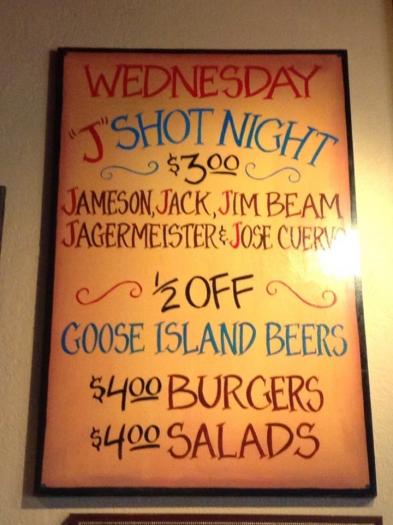 WEDNESDAY
"J" SHOT NIGHT
$3.00
JAMESON, JACK, JIM BEAM
JAGERMEISTER & JOSE CUERVO
1/2 OFF
GOOSE ISLAND BEERS
$4.00 BURGERS
$4.00 SALADS